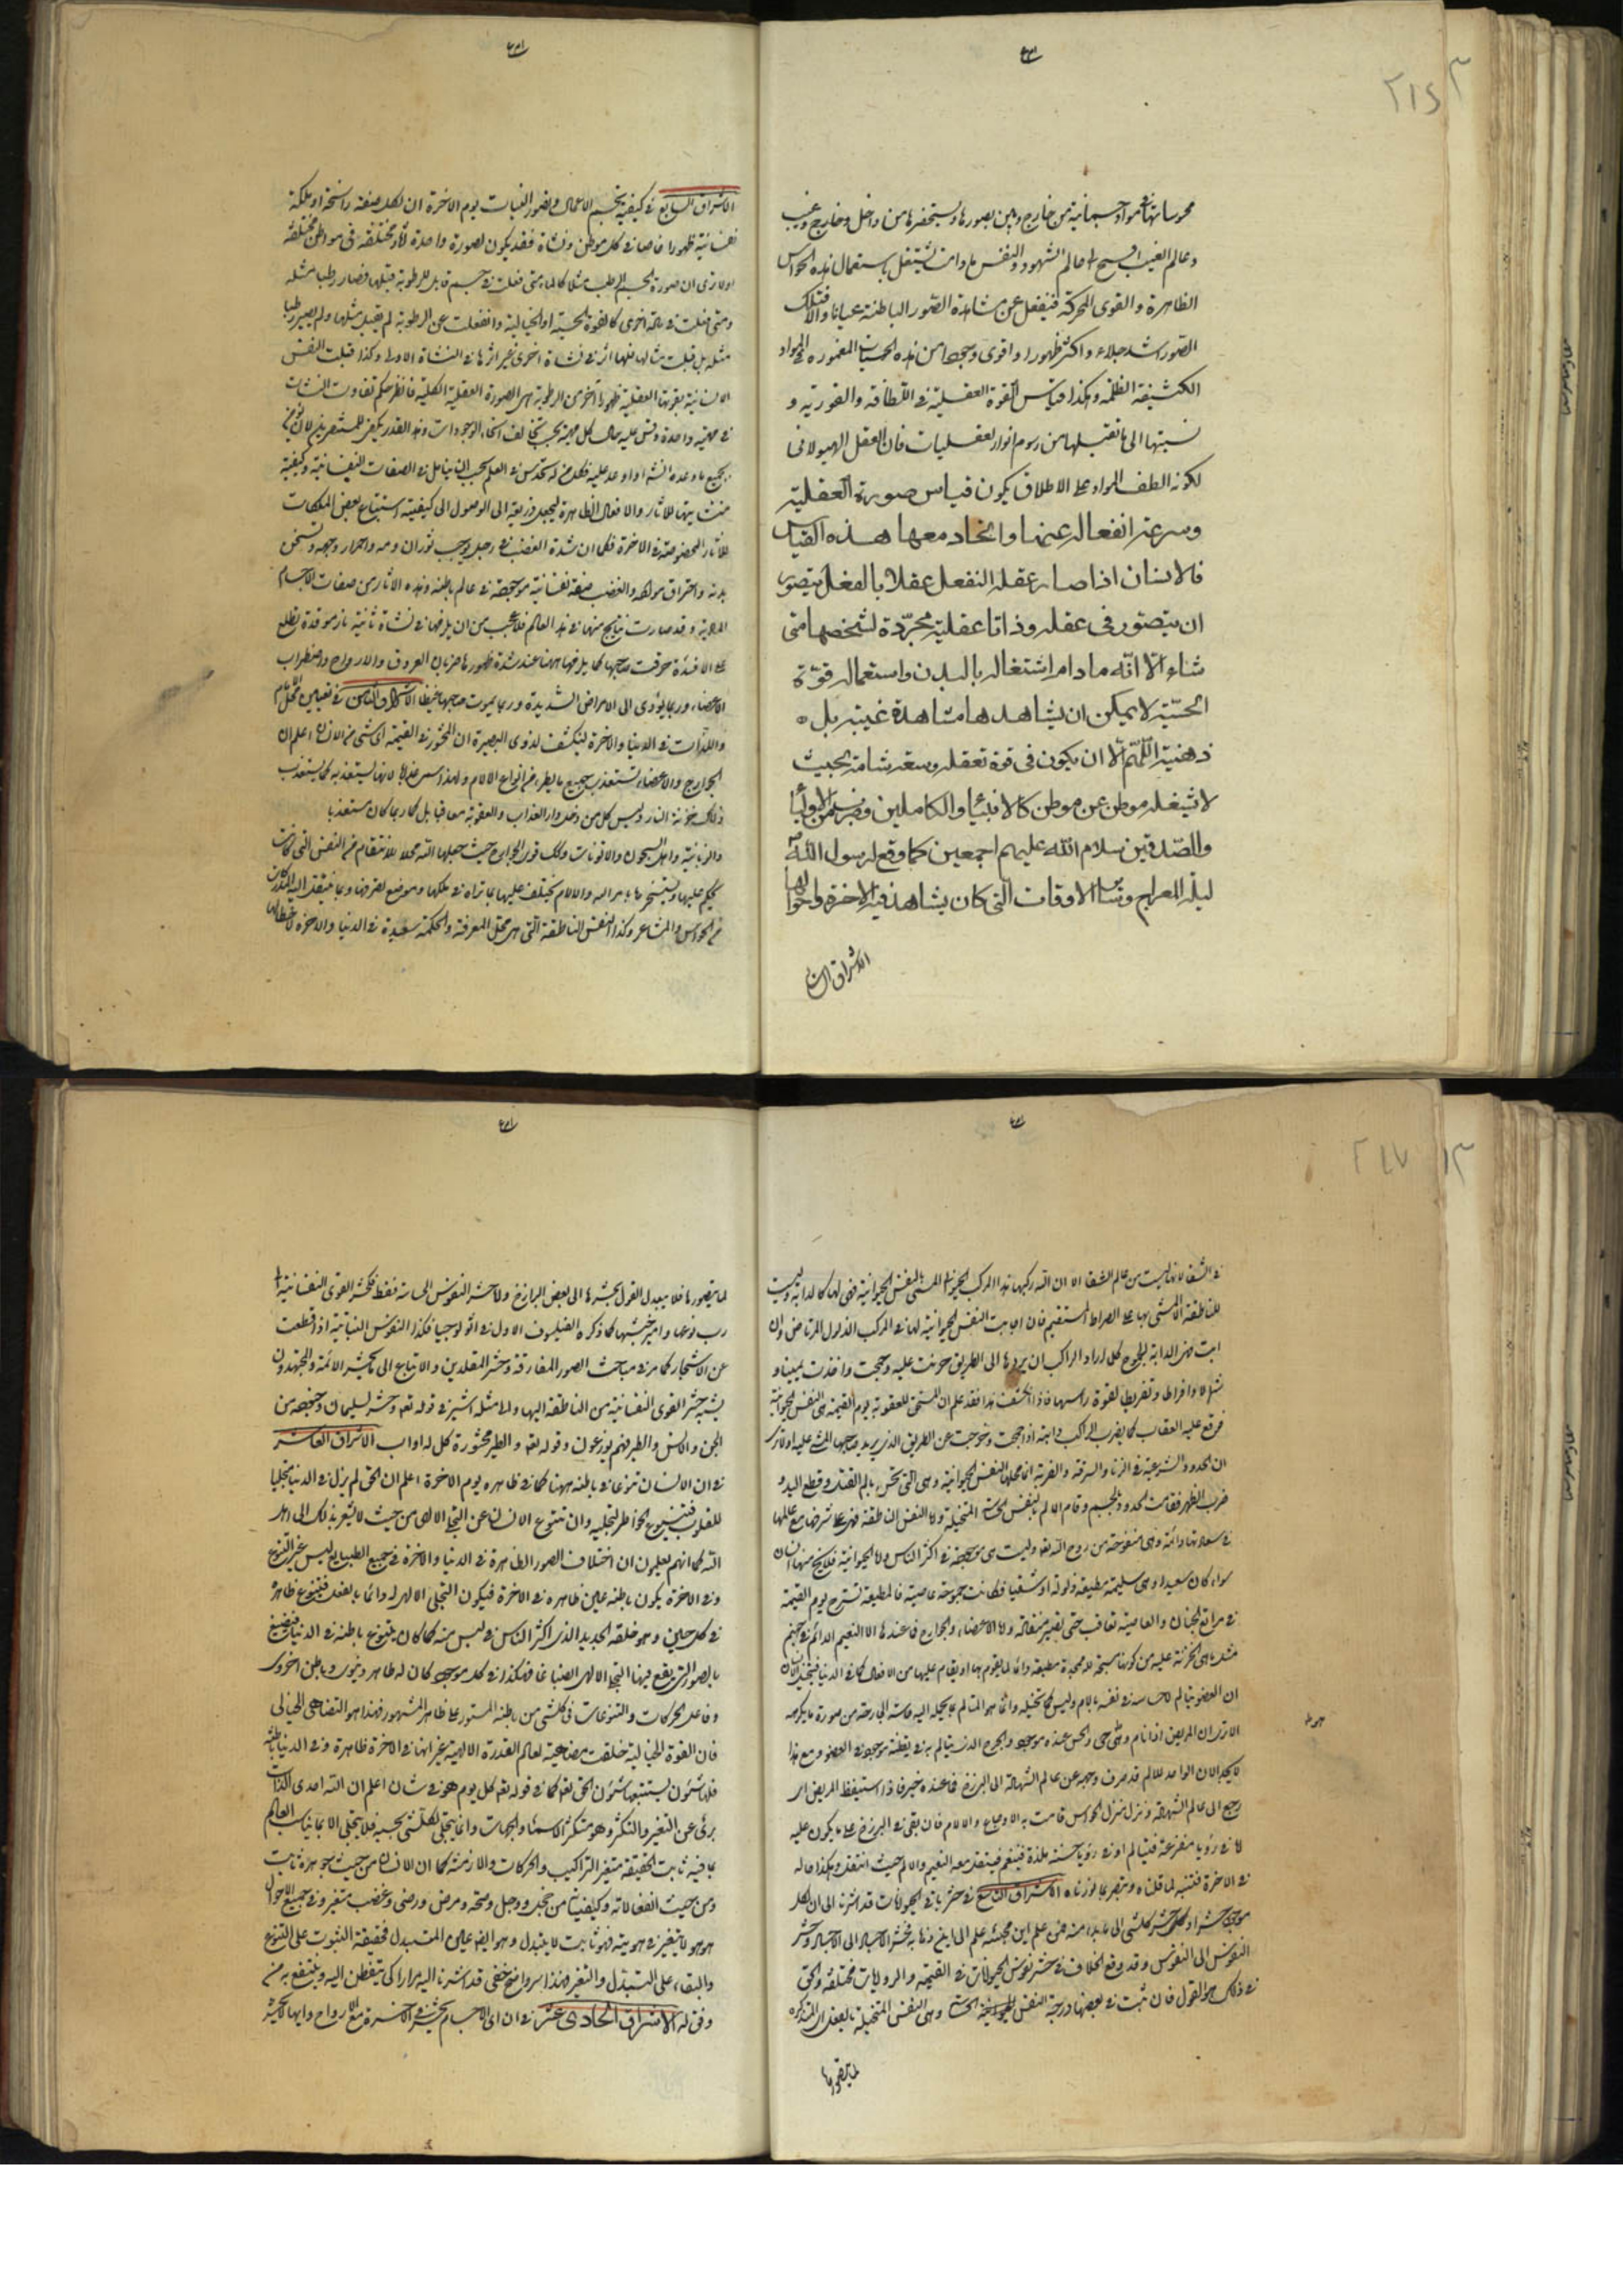 ٢١٤
محوساتها في مواد جسمانية من خارج وبين بصورها ويستحضرها من داخل وخارج وغيب
وعالم الغيب افسح من عالم الشهود والنفس ما دامت تشتغل باستعمال هذه الحواس
الظاهرة والقوى المحركة فينفعل عن مشاهدة الصور الباطنة عيانا والا فتلك
الصور اشد جلاء واكثر ظهورا واقوى وجودا من هذه الحسيات المغمورة في المواد
الكثيفة المظلمة وهكذا قياس القوة العقلية في اللطافة والنورية و
نسبتها الى ما تقبلها من رسوم انوار لعقليات فان العقل الهيولاني
لكونه الطف المواد على الاطلاق يكون قياس صورته العقلية
وسرعة انفعاله عنها واتحاد معها هذه القياس
فالانسان اذا صار عقله المنفعل عقلا بالفعل يتصور
ان يتصور في عقله وذاتا عقلية مجردة لشخصها متى
شاء الا انه مادام اشتغاله بالبدن واستعماله قوته
الحسية لا يمكن ان يشاهدها مشاهدة غيبة بل
ذهنية اللهم الا ان يكون في قوة تعقله وسعة شامة بحيث
لا يشغله موطن عن موطن كالانبياء والكاملين وضرب من الاولياء
والصدقين سلام الله عليهم اجمعين كما وقع لرسول الله
ليلة المعراج وسائر الاوقات التي كان يشاهد فيه الاخرة واحوالها
الاشراق السابع
الاشراق السابع في كيفية تجسم الاعمال وتصور النيات يوم الاخرة ان لكل صفة راسخة او ملكة
نفسانية ظهورا خاصا في كل موطن ونشاة فقد يكون لصورة واحدة اثار مختلفة في مواطن مختلفة
اولا ترى ان صورة الجسم الرطب مثلا كالماء متى فعلت في جسم قابل للرطوبة قبلها فصار رطبا مثله
ومتى فعلت في مادة اخرى كالقوة الحسية او الخيالية وانفعلت عن الرطوبة لم تقبل مثلها ولم يصير رطبا
مثله بل قبلت مثالها فلها اثر في نشاة اخرى غير اثرها في النشاة الاولى وكذا قبلت النفس
الانسانية بقوتها العقلية ظهورا اخر من الرطوبة هي الصورة العقلية الكلية فانظر حكم تفاوت النشات
في مهية واحدة وقس عليه حال كل مهية بحسب تخالف انحاء الوجودات وهذا القدر يكفي للمستبصر
بجميع ما وعده الشارع او اوعد عليه فكل من له تحدس في العلم يجب ان يتامل في الصفات النفسانية وكيفية
منشأيتها للاثار والافعال الظاهرة ليجعل ذريعة الى الوصول الى كيفية استتباع بعض الملكات
للاثار المخصوصة في الاخرة فكما ان شدة الغضب في رجل يوجب ثوران دمه واحمرار وجهه وتسخن
بدنه واحتراق مواده والغضب صفة نفسانية موجودة في عالم باطنه وهذه الاثار من صفات الاجسام
المادية وقد صارت نتايج منها في هذا العالم فلا عجب من ان يلزمها في نشاة ثانية نار موقدة تطلع
على الافئدة احرقت صاحبها كما يلزمها ههنا عند شدة ظهورها ضربان العروق والارواح واضطراب
الاعضاء وربما يؤدي الى الامراض الشديدة وربما يموت صاحبها غيظا الاشراق الثامن في تعيين محل الالام
واللذات في الدنيا والاخرة لينكشف لذوي البصيرة ان المحشور في القيمة اي شيء من الانسان اعلم ان
الجوارح والاعضاء تستعذب جميع ما يطرء من انواع الالام ولهذا سمي عذابا لانها تستعذبه كما يستعذب
ذلك خزنة النار وليس كل من دخل دار العذاب والعقوبة معاقبا بل كان ربما كان مستعذبا
والزبانية واهل السجون والاتونات وكذلك قوى الجوارح حيث جعلها الله محلا للانتقام من النفس التي كانت
تحكم عليها وتسخرها بامر الله والالام تختلف عليها بما تراه في ملكها وموضع تصرفها وبما ينقل اليها المدركات
من الحواس والمشاعر وكذا النفس الناطقة التي هي محل المعرفة والحكمة سعيدة في الدنيا والاخرة لا حظ لها
٢١٧
في الشقاء لانها ليست من عالم الشقاء الا ان الله ركبها هذا المركب الحيواني المسمى بالنفس الحيوانية فهي لها كالدابة وليست
للناطقة الا المشي بها على الصراط المستقيم فان اجابت النفس الحيوانية لها فهي المركب الذلول المرتاض وان
ابت فهي الدابة الجموح كلما اراد الراكب ان يردها الى الطريق حرنت عليه وجمحت واخذت يمينا و
شمالا وافراطا وتفريطا لقوة راسها فاذا انكشف هذا فقد علم ان المستحق للعقوبة يوم القيمة هي النفس الحيوانية
فوقع عليه العقاب كما يضرب الراكب دابته اذا جمحت وخرجت عن الطريق الذي يريد صاحبها المشي عليه اولا ترى
ان الحدود الشرعية في الزنا والسرقة والفرية انما محلها النفس الحيوانية وهي التي تحس بالم القتل وقطع اليد و
ضرب الظهر فقامت الحدود بالجسم وقام الالم بالنفس الحساسة المتخيلة واما النفس الناطقة فهي على شرفها مع عالمها
في سعادتها دائمة وهي منفوخة من روح الله تعالى وليست هي موجودة في اكثر الناس
سواء كان سعيدا وهي سليمة مطيعة ذلولة او شقيا فكانت جموحة عاصية فالمطيعة تسرح يوم القيمة
في مراتع الجنان والعاصية تعاقب حتى تصير منقادة واما الاعضاء والجوارح فما عندها الا النعيم الدائم في جهنم
مثل ما هي الخزنة عليه من كونها مسبحة لله ممجدة مطيعة دائما لما يقوم بها او يقام عليها من الافعال كما في الدنيا فيتخيل الانسان
ان العضو يتالم لاحساسه في نفسه بالام وليس كما تخيله وانما هو المتالم بما يحمله اليه حاسة الجارحة من صورة ما يكرهه
الا ترى ان المريض اذا نام وهو حي والحس عنده موجود والجرح الذي يتالم به في يقظته موجود في العضو ومع هذا
لا يجد الالم لان الواجد للالم قد صرف وجهه عن عالم الشهادة الى البرزخ فما عنده خبر فاذا استيقظ المريض اي
رجع الى عالم الشهادة ونزل منزل الحواس قامت به الاوجاع والالام فان بقي في البرزخ على ما يكون عليه
اما في رؤيا مفزعة فيتالم او في رؤيا حسنة ملذة فيتنعم فينتقل معه النعيم والالم حيث انتقل وهكذا حاله
في الاخرة فتنبه لما قلناه وتبصر بما نورناه الاشراق التاسع في حشر باقي الحيوانات قد اشرنا الى ان لكل
موجود حشرا وحشر كل شيء الى ما بدء منه فمن علم اين مجيئه علم الى اين ذهابه فحشر الاجساد الى الاجساد وحشر
النفوس الى النفوس وقد وقع الخلاف في حشر نفوس الحيوانات في القيمة والروايات مختلفة والحق
في ذلك هو القول فان ثبت في بعضها درجة النفس الحيوانية الحساسة وهي النفس المتخيلة بالفعل المتذكرة
لما يتصورها
لما يتصورها فلا يبعد القول بحشرها الى بعض البرازخ واما حشر النفوس الحساسة فقط فكحشر القوى النفسانية الى
رب نوعها وامير جيشها كما ذكره الفيلسوف الاول في اثولوجيا وكذا النفوس النباتية اذا قطعت
عن الاشجار كما مر في مباحث الصور المفارقة وحشر المقلدين والاتباع الى ما يحشر الائمة والمجتهدون
يشبه حشر القوى النفسانية من الناطقة اليها والى مثله اشير في قوله تعالى وحشر لسليمان جنوده من
الجن والانس والطير فهم يوزعون وقوله تعالى والطير محشورة كل له اواب الاشراق العاشر
في ان الانسان تنوعا في باطنه ههنا كما في ظاهره يوم الاخرة اعلم ان الحق لم يزل في الدنيا متجليا
للقلوب فتتنوع الخواطر لتجليه وان تنوع الانسان عن التجلي الالهي من حيث لا يشعر بذلك الا اهل
الله كما انهم يعلمون ان اختلاف الصور الظاهرة في الدنيا والاخرة في جميع الطبايع ليس غير التنوع
وفي الاخرة يكون باطنه عين ظاهره في الاخرة فيكون التجلي الالهي له دائما بالفعل فيتنوع ظاهره
في كل حين وهو خلقه الجديد الذي اكثر الناس في لبس منه كما كان يتنوع باطنه في الدنيا فيصبغ
بالصور التي يقع فيها التجلي الالهي انصباغا فهكذا في كل موجود كان له ظاهر دنيوي وباطن اخروي
وفاعل الحركات والتنوعات في كل شيء من باطنه المستور على ظاهره المشهور فهذا هو التضاهي الخيالي
فان القوة الخيالية خلقت مضاهية لعالم القدرة الالهية غير انها في الاخرة ظاهرة وفي الدنيا باطنة
فلها شؤون يستتبعها شؤون الحق تعالى كما في قوله تعالى كل يوم هو في شان اعلم ان الله احدي الذات
برئ عن التغير والتكثر وهو متكثر الاسماء والجهات وانما يتجلى لكل شيء بحسبه فلا يتجلى الا بما يناسب العالم
بما فيه ثابت الحقيقة متغير التراكيب والحركات والازمنة كما ان الانسان من حيث جوهره ثابت
ومن حيث انفعالاته وكيفياته من خجل ووجل وصحة ومرض ورضى وغضب متغير وفي جميع الاحوال
هو هو لا يتغير في هويته فهو ثابت لا يتبدل وهو ايضا عين المتبدل فحقيقة الثبوت على التنوع
والبقاء على التبدل والتغير فهذا سر واضح خفي قد اشرنا اليه مرارا كي يتفطن اليه وينتفع به من
وفق له الاشراق الحادي عشر في ان اي الاجسام يحشر في الاخرة مع الارواح وايها لا يحشر